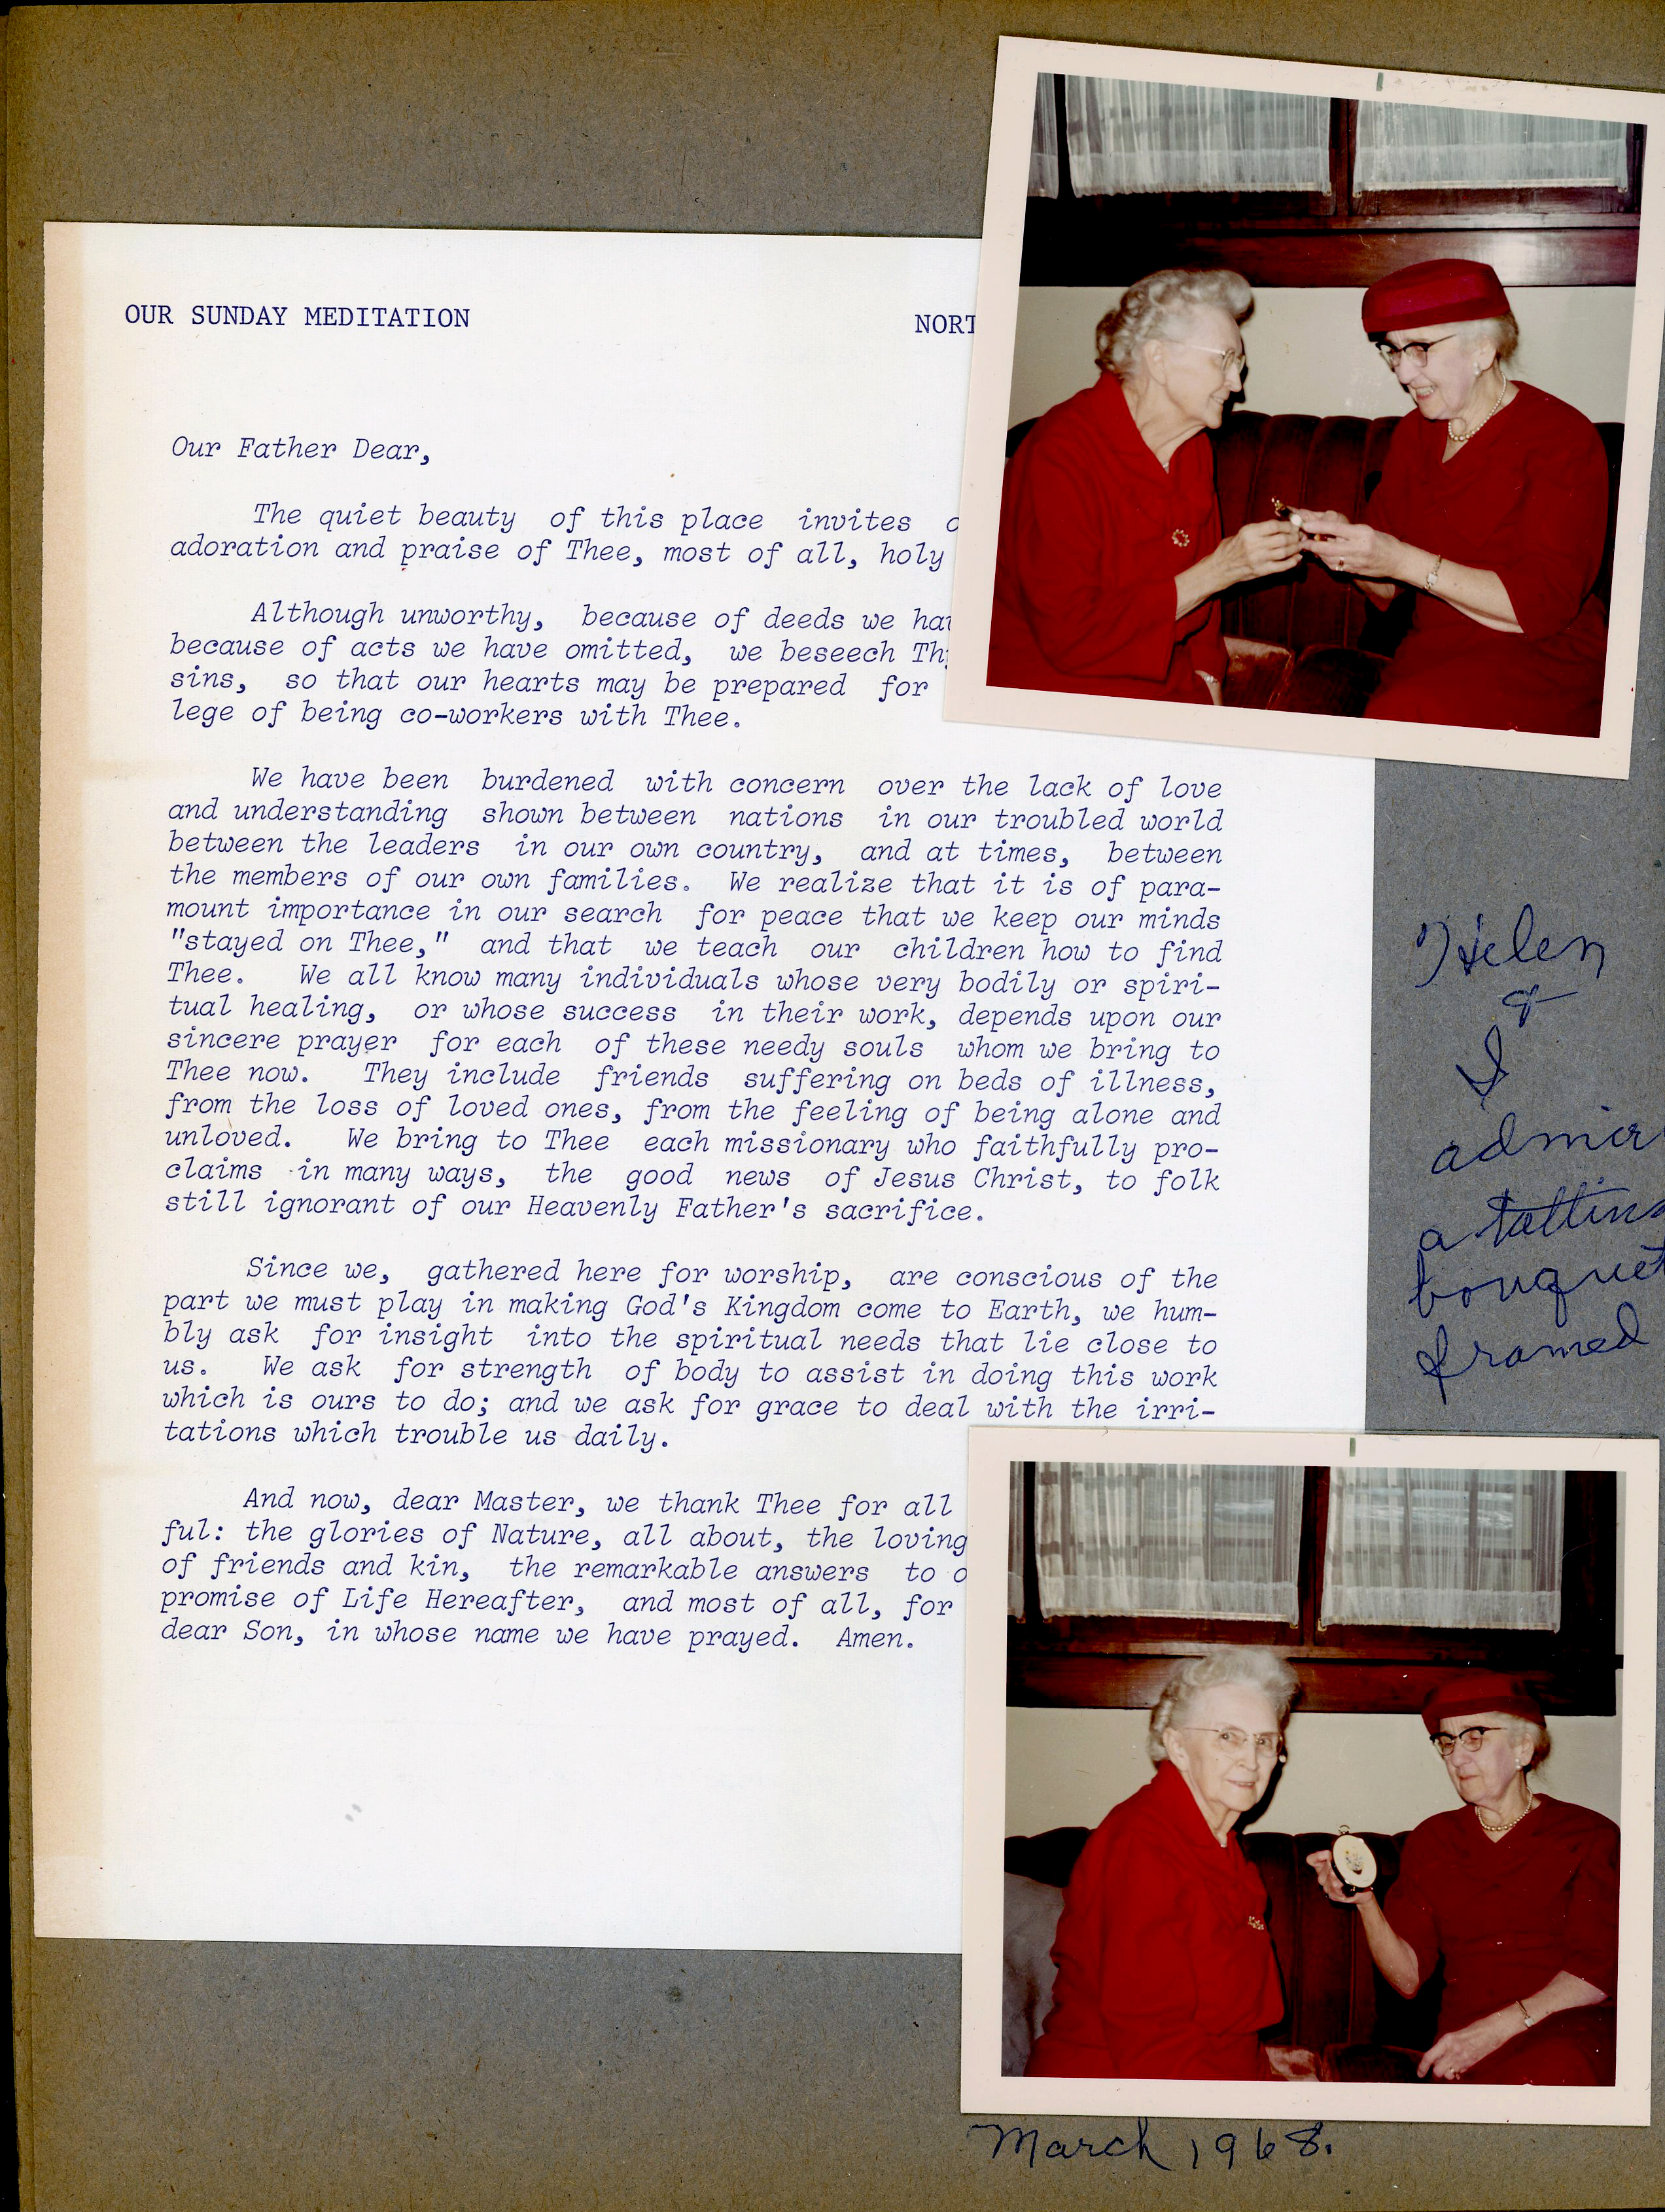 OUR SUNDAY MEDITATION
Our Father Dear,
The quiet beauty of this place invites
adoration and praise of Thee, most of all, holy
Although unworthy, because of deeds we
because of acts we have omitted, we beseech
sins, so that our hearts may be prepared for
lege of being co-workers with Thee.
We have been burdened with concern over the lack of love
and understanding shown between nations in our troubled world
between the leaders in our own country, and at times, between
the members of our own families. We realize that it is of para-
mount importance in our search for peace that we keep our minds
"stayed on Thee," and that we teach our children how to find
Thee. We all know many individuals whose very bodily or spiri-
tual healing, or whose success in their work, depends upon our
sincere prayer for each of these needy souls whom we bring to
Thee now. They include friends suffering on beds of illness,
from the loss of loved ones, from the feeling of being alone and
unloved. We bring to Thee each missionary who faithfully pro-
claims in many ways, the good news of Jesus Christ, to folk
still ignorant of our Heavenly Father's sacrifice.
Since we, gathered here for worship, are conscious of the
part we must play in making God's Kingdom come to Earth, we hum-
bly ask for insight into the spiritual needs that lie close to
us. We ask for strength of body to assist in doing this work
which is ours to do; and we ask for grace to deal with the irri-
tations which trouble us daily.
And now, dear Master, we thank Thee for all
ful: the glories of Nature, all about, the loving
of friends and kin, the remarkable answers to
promise of Life Hereafter, and most of all, for
dear Son, in whose name we have prayed. Amen.
Helen
&
I
a
framed
March 1968.